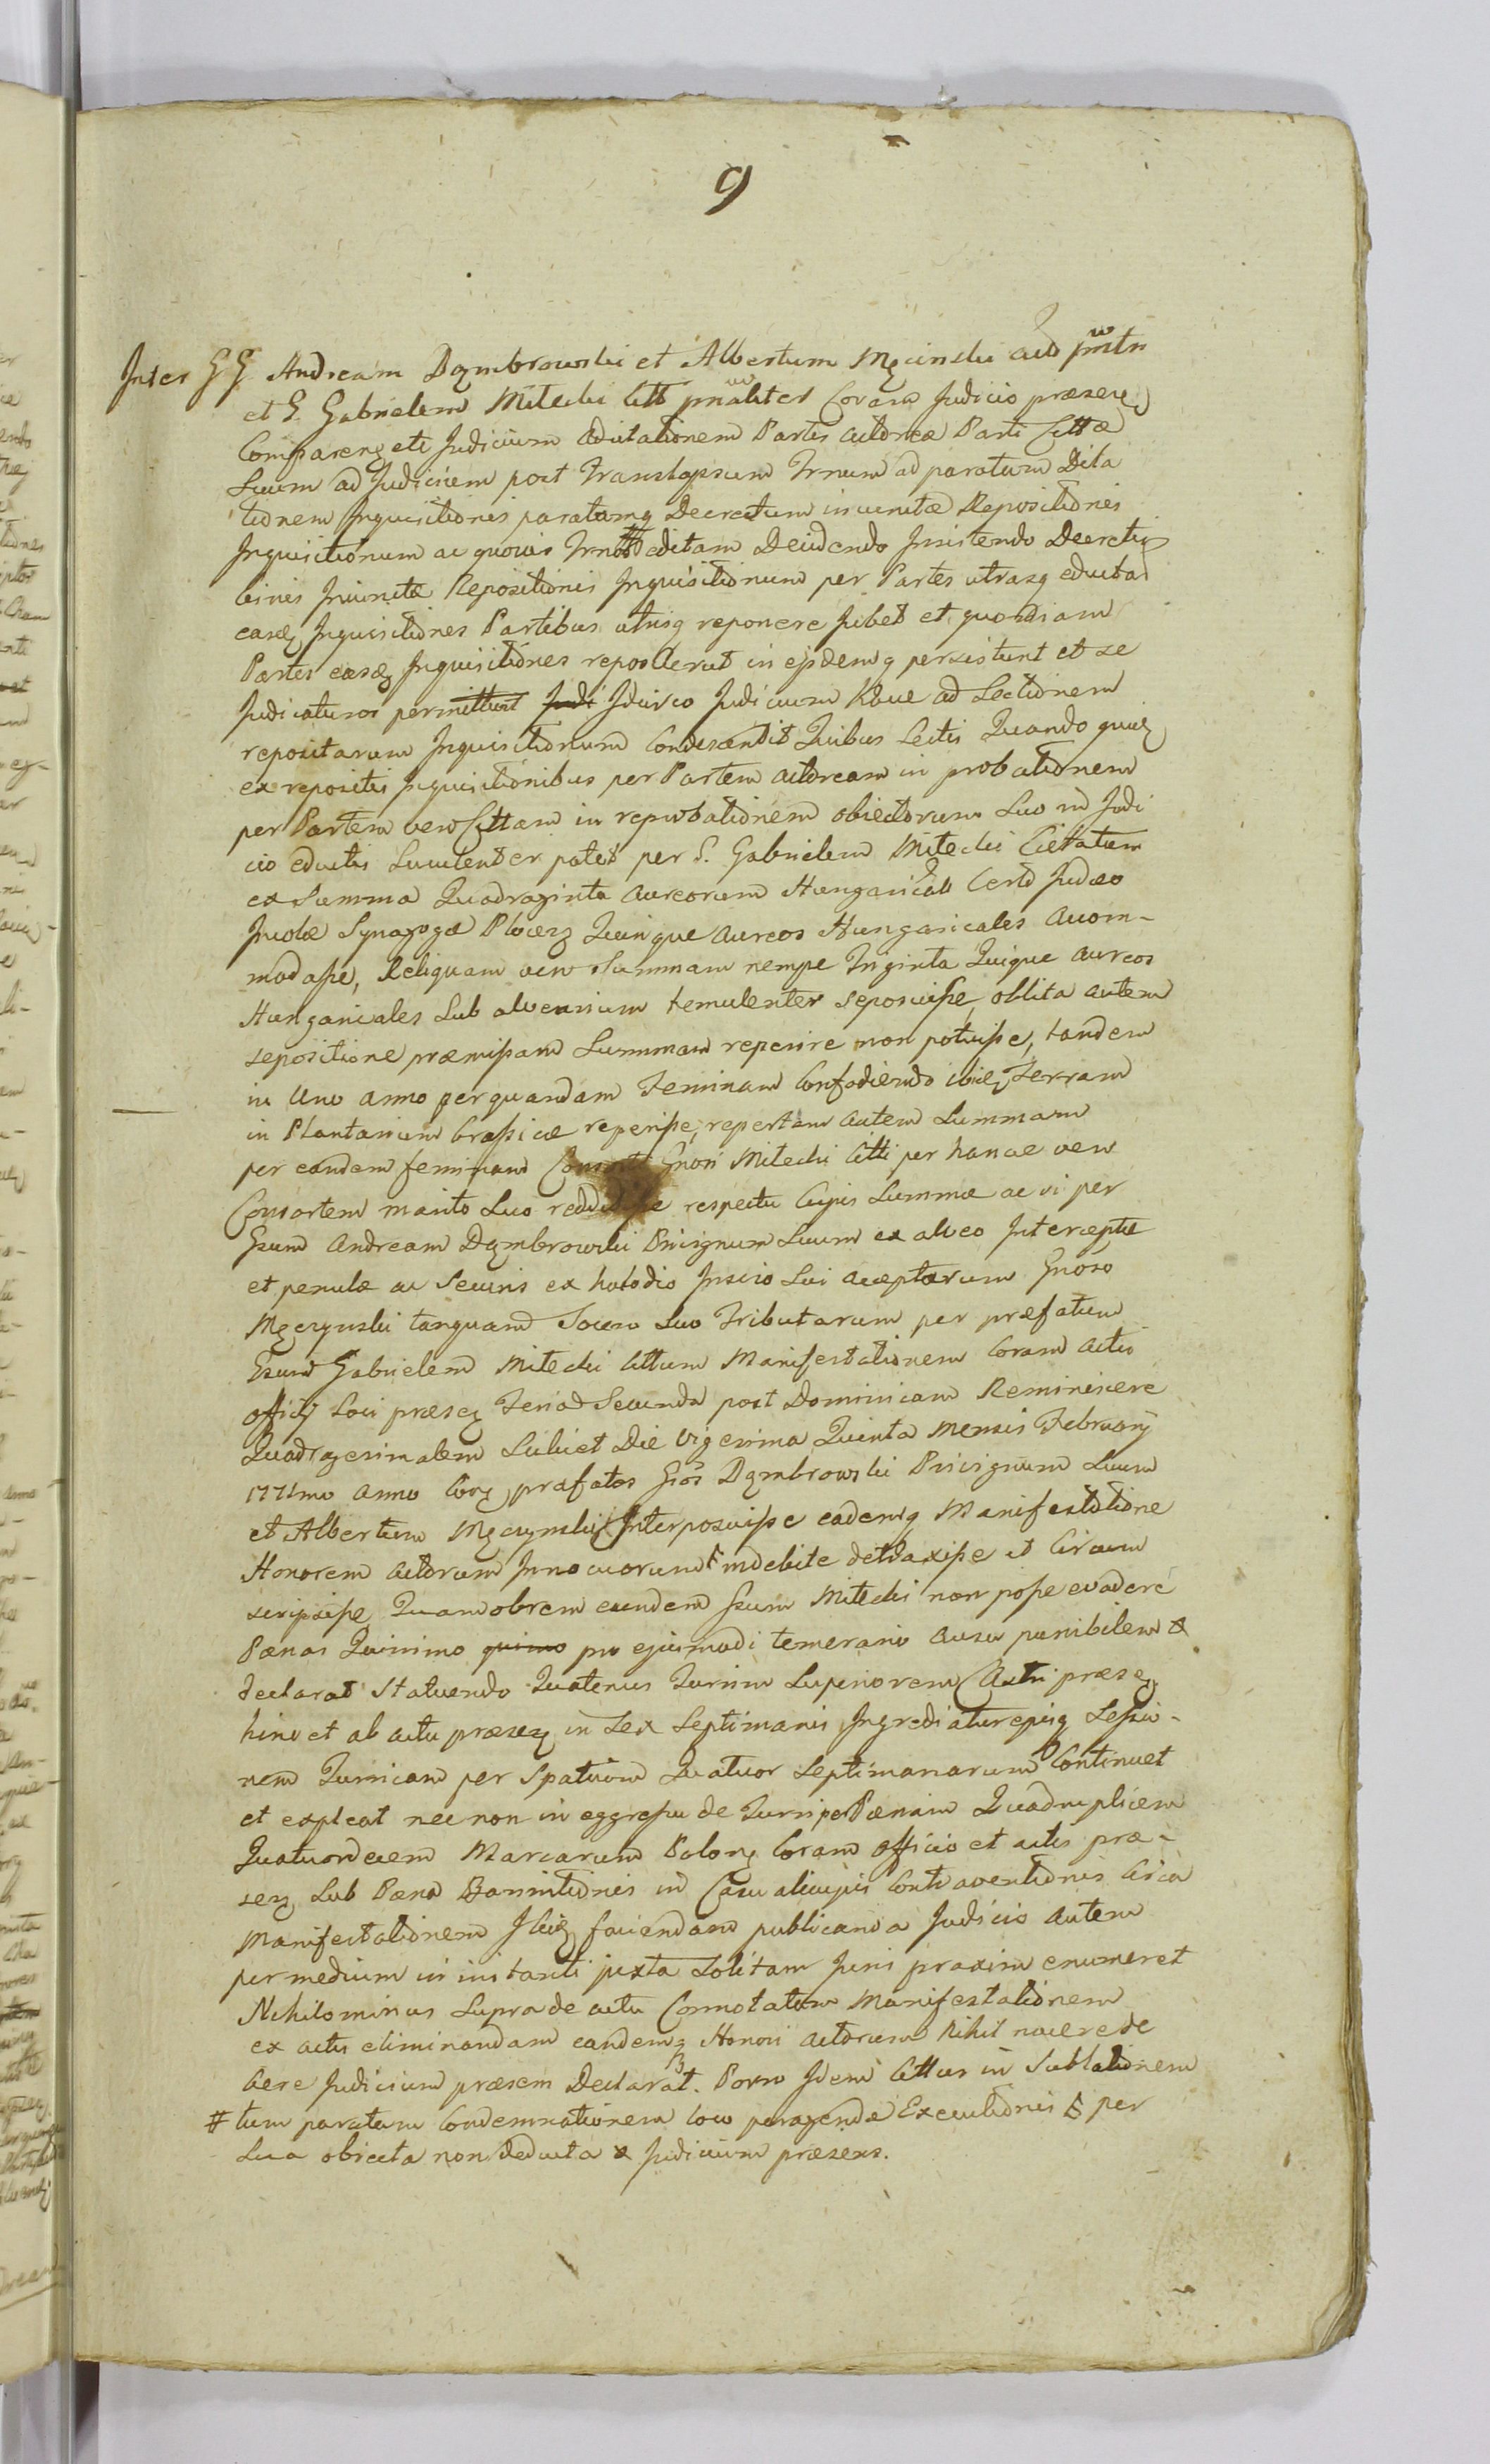 9
Inter GG Andream Dąmbrowski et Albertum Męcinski
et G Gabrielem Mitecki Citt Coram Judicio præseng
Compareng eti Judicium Partis Actoreæ Parti Cittæ
Suum ad Judicium post translapsum Trnum ad paratum Dila
tionem Inquisitionis Decretum iniunctæ Repositionis
Inquisitionum ac quovis editam Insistendo Decretis
binis Iniunctæ Repositionis Inquisitionum per Partes utrasq eductas
easdę Inquisitiones Partibus utrisq reponere jubet et quoniam
Partes easdę Inquisitiones reposuerut in ejsdemq persistunt et se
Judicaturos permittunt Judi Idcirco Judicium ad Lectionem
repositarum Inquisitionum Condescendit Quibus Lectis Quando quidę
ex repositis Inquisitionibus per Partem actoream in probationem
per Partem vero Cittam in reprobationem obiectorum Suo in Judi
cio eductis Luculenter patet per G. Gabrielem Mitecki Cittatum
ex Summa Quadraginta Aureorum Hungarical Certo Judæo
Incolæ Synagogæ Plocęg Quinque Aureos Hungaricales Accom-
modasse, Reliquam vero Summam nempe Triginta Quique Aureos
Hungaricales Sub alvearium temulenter seposuisse, oblita autem
sepositione præmissam Summam reperire non potuisse, tandem
in Uno Anno per quandam Feminam Confodiendo ibidę Terram
in Plantarium brassicæ reperisse, repertam autem Summam
per eandem feminam Gnosi Mitecki Citti per hancæ vero
Consortem marito Suo respectu Cujus Summæ ac vi per
Gsum Andream Dąmbrowski Privignum Suum ex alveo Interceptæ
et penulæ ac Securis ex Inscio Sui acceptarum Gnoso
Męczynski tanquam Socero Suo Tributarum per præfatum
Gsum Gabrielem Mitecki Cittum Manifestationem Coram Actis
Officij Loci præseg Feria Secunda post Dominicam Reminiscere
Quadragesimalem Scilicet Die Vigesima Quinta Mensis February
1771mo Anno præfatos Gsos Dąmbrowski Privignum Suum
et Albertum Męczynski Interposuisse eademq Manifestatione
Honorem Actorum Innocuorum indebite detraxisse et Circum
scripsisse Quamobrem eundem Gsum Mitecki non posse evadere
Pænas Quinimo quimo pro ejusmodi temerario Ausu punibilem
declarat Statuendo Quatenus Turrim Superiorem Castri præseg
hinc et ab actu præseg in Sex Septimanis Ingrediatur ejusq Sessio-
nem Turricam per Spatium Quatuor Septimanarum Continuet
et expleat nec non in eggressu de Turri Pænam Quadruplicem
Quatuordecem Marcarum Polong Coram Officio et actis præ-
seg Sub Pæna Bannitionis in Casu alicujus Contraventionis Circa
Manifestationem faciendam publicanda Judicio autem
per medium in instanti juxta Solitam Juris praxim enumeret
Nihilominus Supra de actu Connotatam Manifestationem
ex actis eliminandam eandemq Honori Actorum Nihil nocere de
bere Judicium præsem Declarat. Porro Idem Cittus in Sublationem
# tum paratam Condemnationem loco peragendæ Executionis per
Sua obiecta non deducta Judicium præsens.